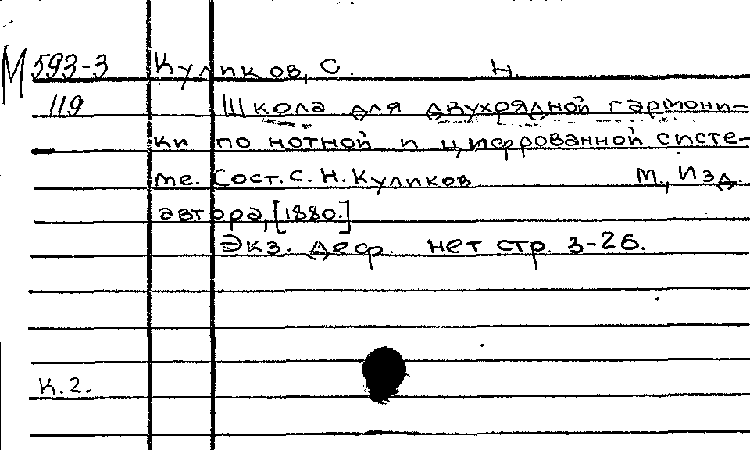 М 593-3 Куликов, С. Н.
119 Школа для двухрядной гармони-
ки по нотной и цифрованной систе-
ме. Сост. С. Н. Куликов М., Изд.
автора, [1880.]
Экз. деф. нет стр. 3-26.
К. 2.